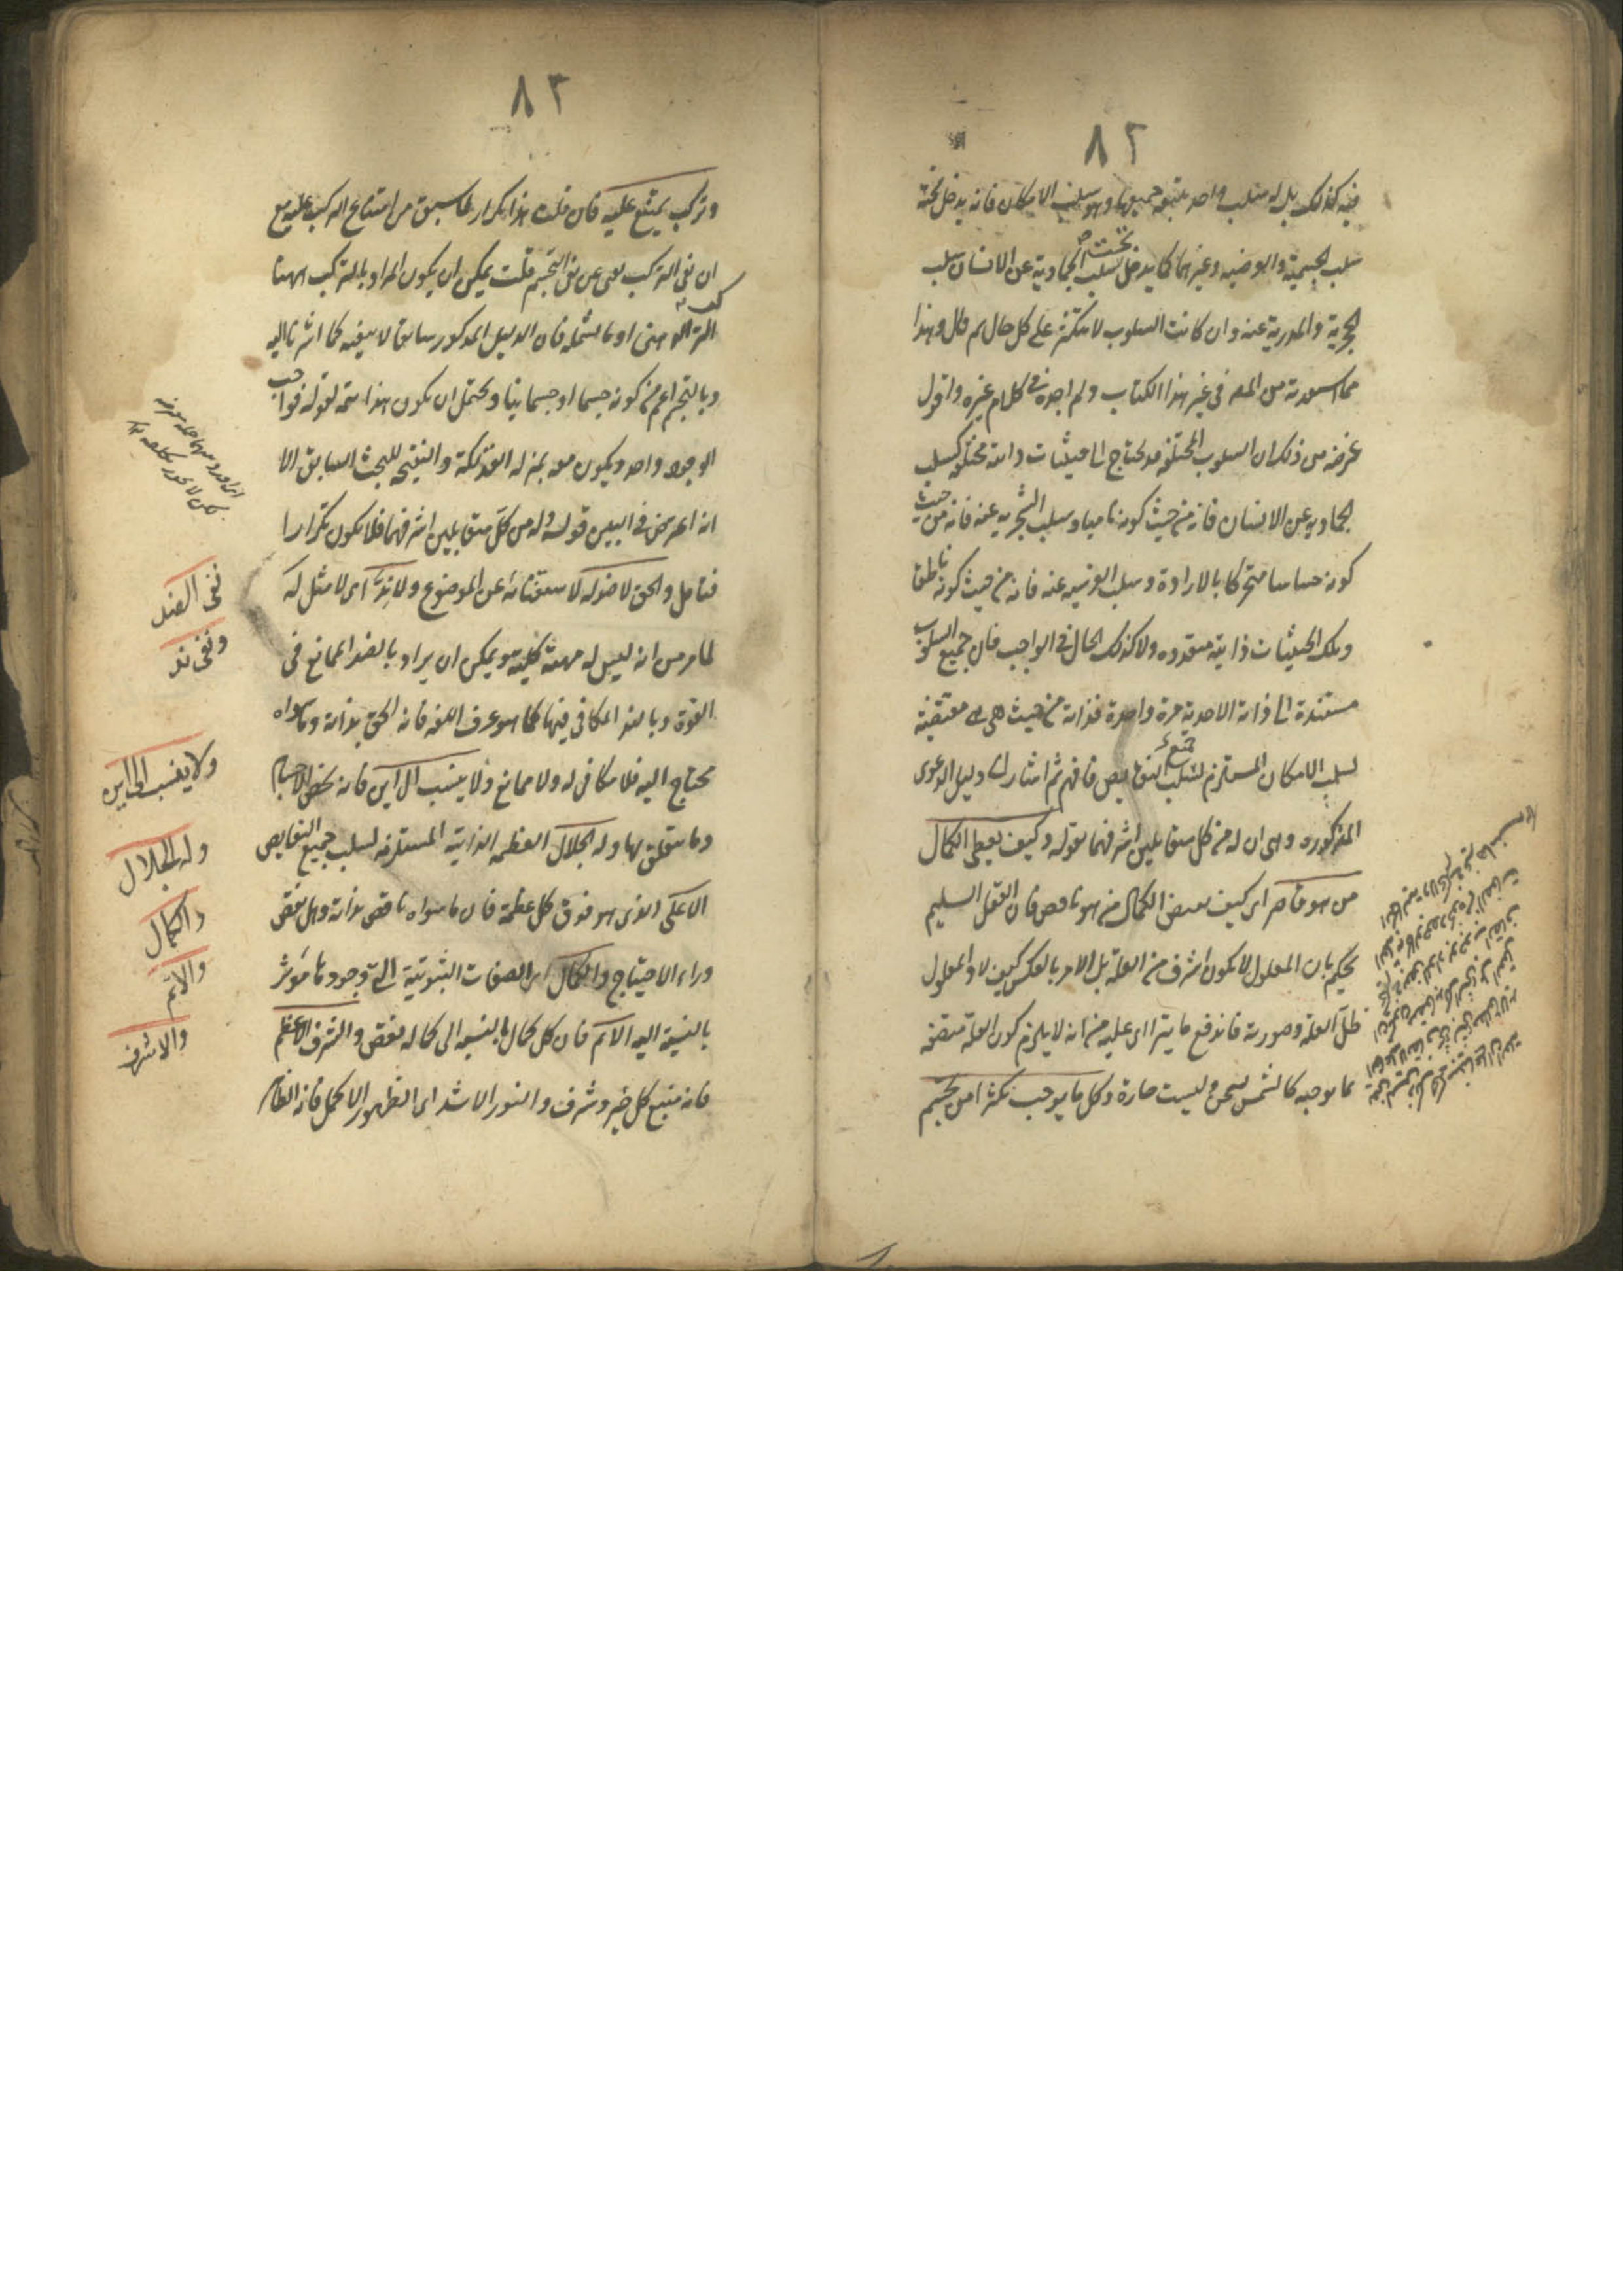 ٨٢
فيه كذلك بل له سلب واحد يتبعه جميعها وهو سلب الامكان فانه يدخل تحته
سلب الجسمية والعرضية وغيرهما كما يدخل تحت سلب الجمادية عن الانسان سلب
الحجرية والمدرية عنه وان كانت السلوب لا تتكثر على كل حال ثم قال وهذا
مما استفدته من المصـ في غير هذا الكتاب ولم اجده في كلام غيره واقول
غرضه من ذلك ان السلوب المختلفة قد تحتاج الى حيثيات ذاتية مختلفة كسلب
الجمادية عن الانسان فانه من حيث كونه ناميا وسلب الشجرية عنه فانه من حيث
كونه حساسا متحركا بالارادة وسلب الفرسية عنه فانه من حيث كونه ناطقا
وتلك الحيثيات ذاتية متعددة ولا كذلك الحال في الواجب فان جميع السلوب
مستندة الى ذاته الاحدية مرة واحدة فذاته من حيث هي هي مقتضية
لسلب الامكان المستلزم لسلب جميع النقايص فافهم ثم اشار الى دليل الدعوى
المذكوره وهى ان له من كل متقابلين اشرفهما بقوله وكيف يعطى الكمال
من هو قاصر اى كيف يعطى الكمال من هو ناقص فان العقل السليم
يحكم بان المعلول لا يكون اشرف من العلة بل الامر بالعكس كيف لا والمعلول
ظل العلة وصورته فاندفع ما يتراءى عليه من انه لا يلزم كون العلة متصفة
بما توجبه كالشمس تسخن وليست حارة وكل ما يوجب تكثرا من تجسم
٨٣
وتركب يمتنع عليه فان قلت هذا تكرار لما سبق من امتناع التركب عليه مع
ان نفى التركب يغنى عن نفى التجسم قلت يمكن ان يكون المراد بالتركب ههنا
التركب الذهنى او ما يشمله فان الدليل المذكور سابقا لا ينفيه كما اشرنا اليه
وبالتجسم اعم من كونه جسما او جسمانيا ويحتمل ان يكون هذا تتمة لقوله فواجب
الوجود واحد ويكون معه بمنزلة الفذلكة والنتيجة للبحث السابق الا
انه اعترض في البين قوله وله من كل متقابلين اشرفهما فلا يكون تكرارا
فتامل والحق لا ضد له لاستغنائه عن الموضوع ولا ند اى لا مثل له
لما مر من انه ليس له مهية كلية ويمكن ان يراد بالضد الممانع في
القوة وبالند المكافى فيها كما هو عرف اللغة فانه الحق بذاته وما سواه
محتاج اليه فلا مكافى له ولا ممانع ولا ينسب الى اين فانه يخص الاجسام
وما يتعلق بها وله الجلال العظمة الذاتية المستلزمة لسلب جميع النقايص
الاعلى الذى هو فوق كل عظمة فان ما سواه ناقص بذاته وهل نقص
وراء الاحتياج والكمال اى الصفات الثبوتية التى وجودها مؤثر
بالنسبة اليه الاتم فان كل كمال بالنسبة الى كماله نقص والشرف الاعظم
فانه منبع كل خير وشرف والنور الاشد اى الظهور الاكمل فانه الظاهر
نفى الضد
ونفى ند
ولا ينسب الى اين
وله الجلال
والكمال
والاتم
والاشرف